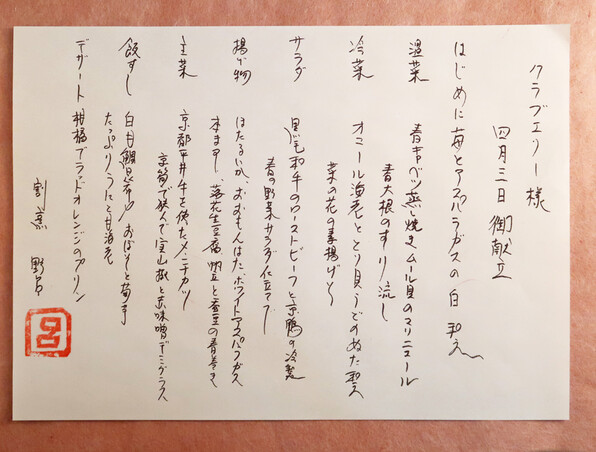 クラブエリー様
四月三日 御献立
はじめに 苺とアスパラガスの白和え
温菜 青キャベツ蒸し焼き ムール貝のマリニエール
青大根のすり流し
冷菜 オニオール海老ととり貝うどのぬた和え
菜の花の素揚げと
サラダ 黒毛和牛のローストビーフと京鴨の冷製
春の野菜サラダ仕立て
揚げ物 ほたるいか、おおもんはた ホワイトアスパラガス
本ます、落花生豆腐 帆立と蚕豆の春巻き
主菜 京都平井牛を使たメンチカツ
京筍で挟んで 実山椒と赤味噌デミグラス
飯すし 白甘鯛昆布〆 おぼろと筍手
たっぷりうにと甘海老
デザート 柑橘ブラッドオレンジのプリン
割烹 野呂
呂